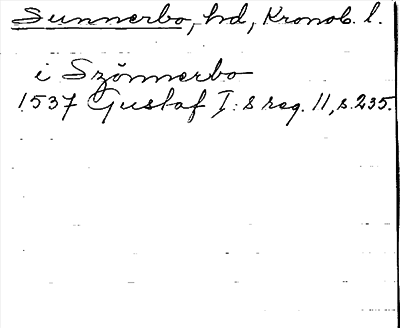 Sunnerbo, hd, Kronob. l.
i Szönnerbo
1537 Gustaf I:s reg. 11, s. 235.